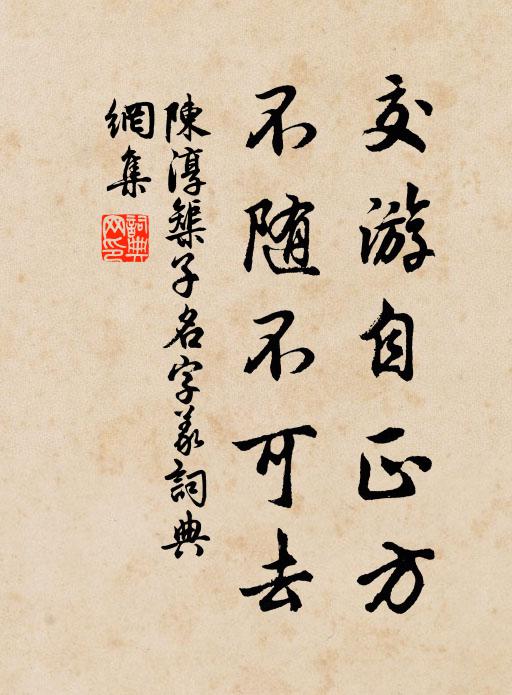 交游自正方
不随不可去
陳淳築子名字義詞典
網集
詞典網印